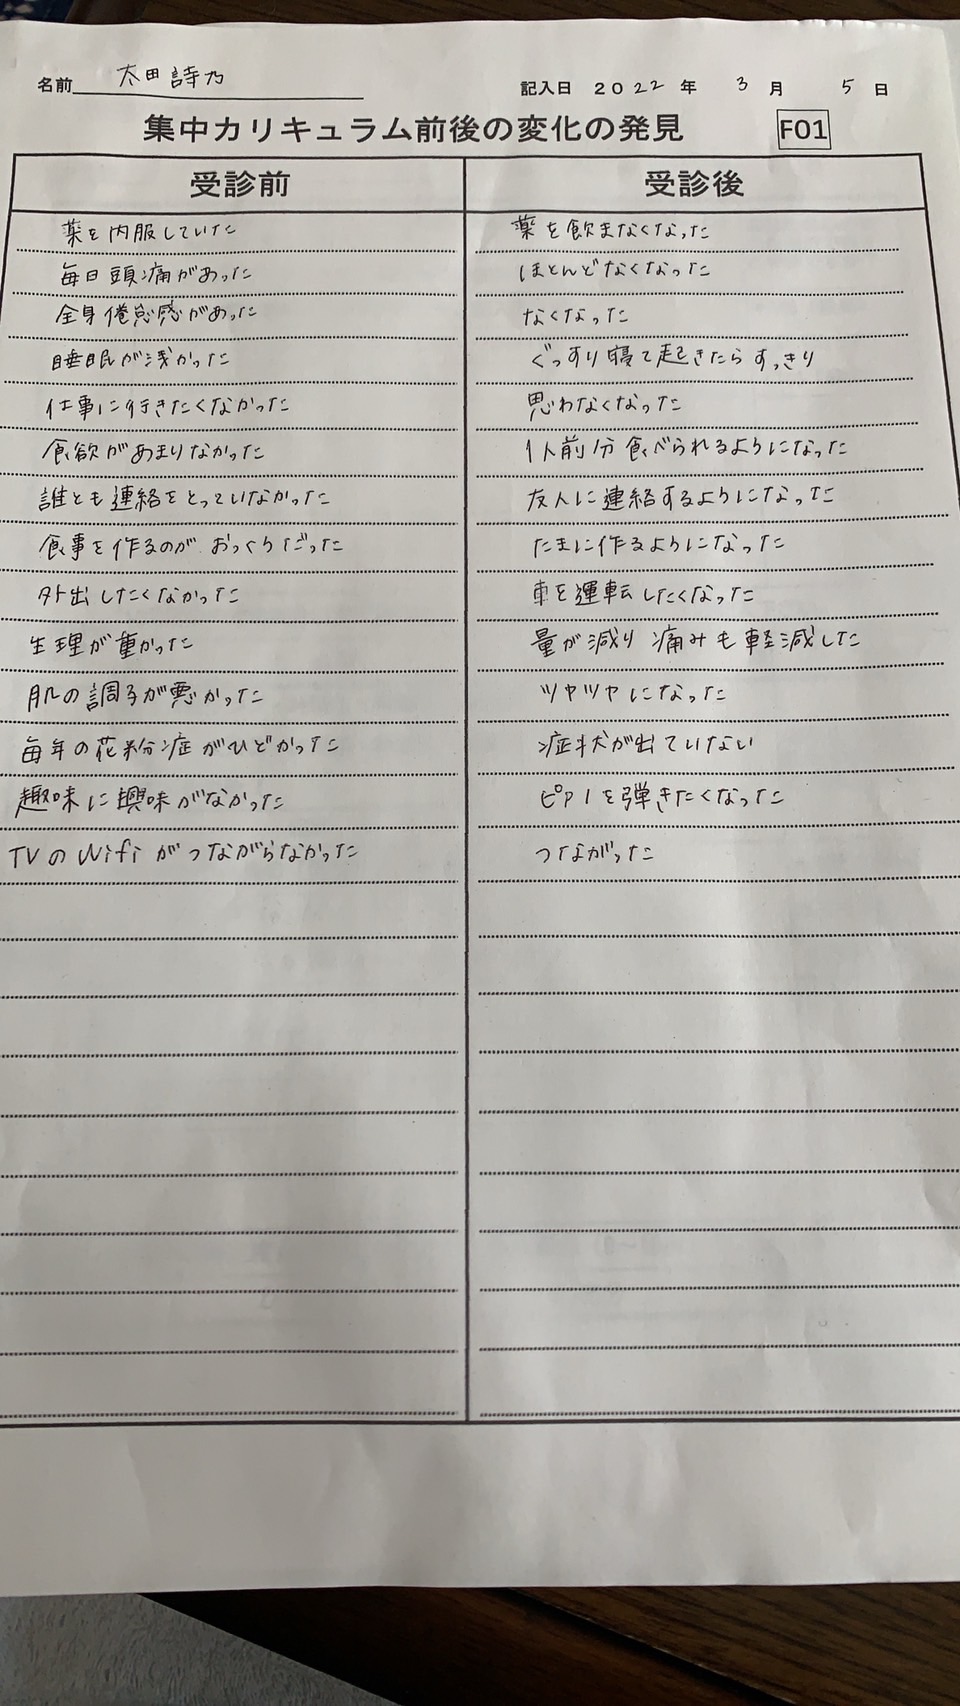 名前 太田詩乃 記入日 2022 年 3 月 5 日
集中カリキュラム前後の変化の発見 F01
受診前 受診後
薬を内服していた 薬を飲まなくなった
毎日頭痛があった ほとんどなくなった
全身倦怠感があった なくなった
睡眠が浅かった ぐっすり寝て起きたらすっきり
仕事に行きたくなかった 思わなくなった
食欲があまりなかった 1人前分食べられるようになった
誰とも連絡をとっていなかった 友人に連絡するようになった
食事を作るのがおっくうだった たまに作るようになった
外出したくなかった 車を運転したくなった
生理が重かった 量が減り痛みも軽減した
肌の調子が悪かった ツヤツヤになった
毎年の花粉症がひどかった 症状が出ていない
趣味に興味がなかった ピアノを弾きたくなった
TVのWifiがつながらなかった つながった